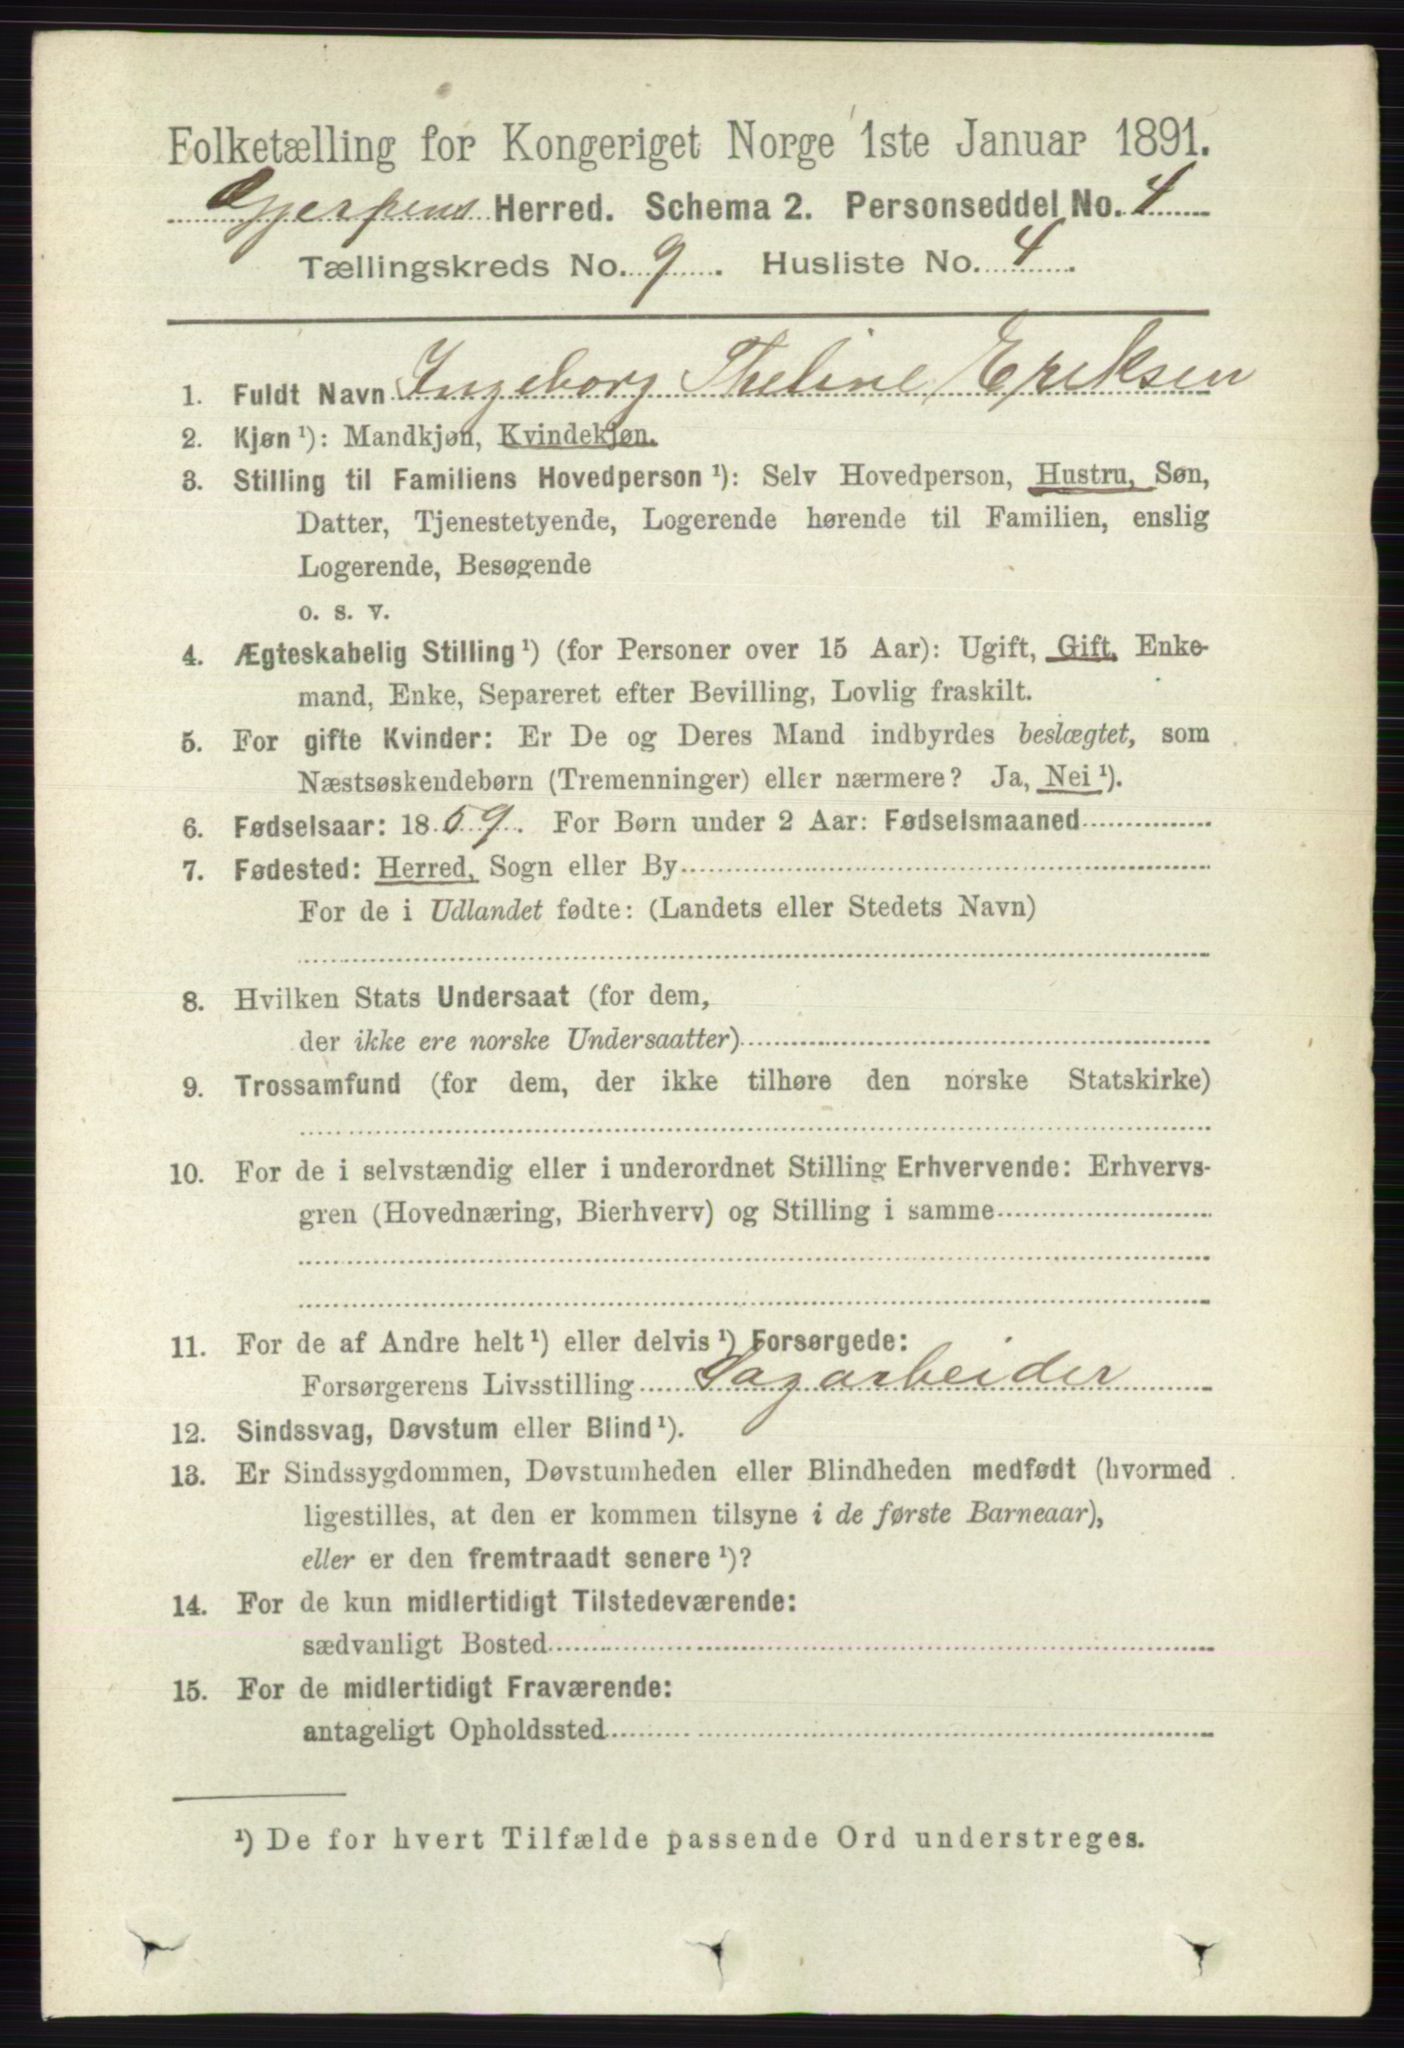 Folketælling for Kongeriget Norge 1ste Januar 1891.
Gjerpens Herred. Schema 2. Personseddel No. 4
Tællingskreds No. 9. Husliste No. 4.
1. Fuldt Navn Ingeborg Theline Eriksen
2. Kjøn ¹): Mandkjøn, Kvindekjøn.
3. Stilling til Familiens Hovedperson ¹): Selv Hovedperson, Hustru, Søn,
Datter, Tjenestetyende, Logerende hørende til Familien, enslig
Logerende, Besøgende
o. s. v.
4. Ægteskabelig Stilling ¹) (for Personer over 15 Aar): Ugift, Gift, Enke-
mand, Enke, Separeret efter Bevilling, Lovlig fraskilt.
5. For gifte Kvinder: Er De og Deres Mand indbyrdes beslægtet, som
Næstsøskendebørn (Tremenninger) eller nærmere? Ja, Nei ¹).
6. Fødselsaar: 1859. For Børn under 2 Aar: Fødselsmaaned
7. Fødested: Herred, Sogn eller By
For de i Udlandet fødte: (Landets eller Stedets Navn)
8. Hvilken Stats Undersaat (for dem,
der ikke ere norske Undersaatter)
9. Trossamfund (for dem, der ikke tilhøre den norske Statskirke)
10. For de i selvstændig eller i underordnet Stilling Erhvervende: Erhvervs-
gren (Hovednæring, Bierhverv) og Stilling i samme
11. For de af Andre helt ¹) eller delvis ¹) Forsørgede:
Forsørgerens Livsstilling Sagarbeider
12. Sindssvag, Døvstum eller Blind ¹).
13. Er Sindssygdommen, Døvstumheden eller Blindheden medfødt (hvormed
ligestilles, at den er kommen tilsyne i de første Barneaar),
eller er den fremtraadt senere ¹)?
14. For de kun midlertidigt Tilstedeværende:
sædvanligt Bosted
15. For de midlertidigt Fraværende:
antageligt Opholdssted
¹) De for hvert Tilfælde passende Ord understreges.